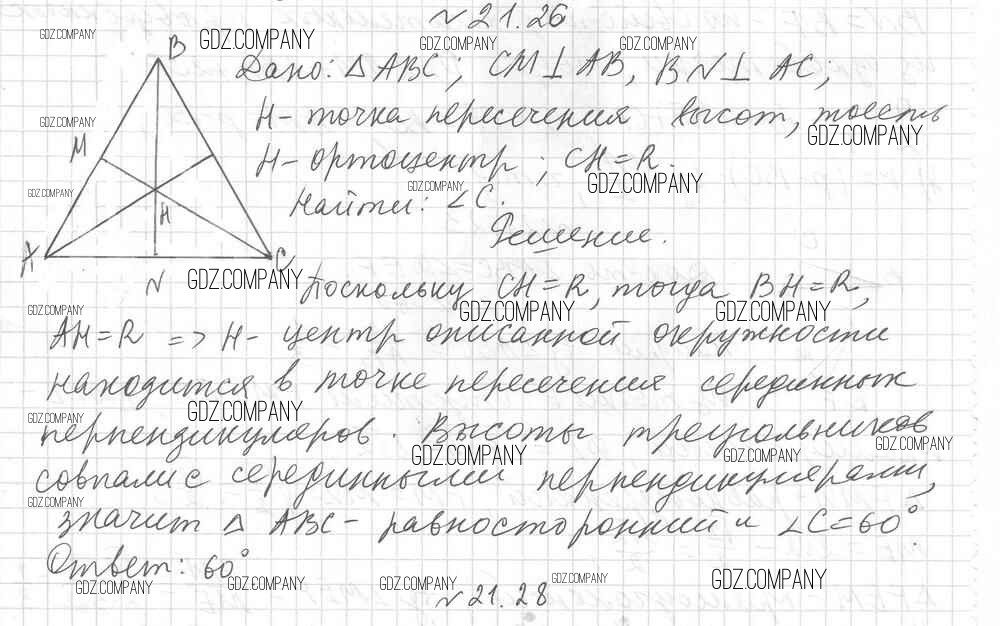 № 21.26
Дано: △ABC; CM⊥AB, BN⊥AC;
H - точка пересечения высот, тоесть
H - ортоцентр; CH=R.
Найти: ∠C.
Решение.
Поскольку CH=R, тогда BH=R,
AH=R => H - центр описанной окружности
находится в точке пересечения серединных
перпендикуляров. Высоты треугольников
совпали с серединными перпендикулярами,
значит △ ABC - равносторонний и ∠C=60°
Ответ: 60°
№ 21.28
B
M
H
A
C
N
GDZ.COMPANY
GDZ.COMPANY
GDZ.COMPANY
GDZ.COMPANY
GDZ.COMPANY
GDZ.COMPANY
GDZ.COMPANY
GDZ.COMPANY
GDZ.COMPANY
GDZ.COMPANY
GDZ.COMPANY
GDZ.COMPANY
GDZ.COMPANY
GDZ.COMPANY
GDZ.COMPANY
GDZ.COMPANY
GDZ.COMPANY
GDZ.COMPANY
GDZ.COMPANY
GDZ.COMPANY
GDZ.COMPANY
GDZ.COMPANY
GDZ.COMPANY
GDZ.COMPANY
GDZ.COMPANY